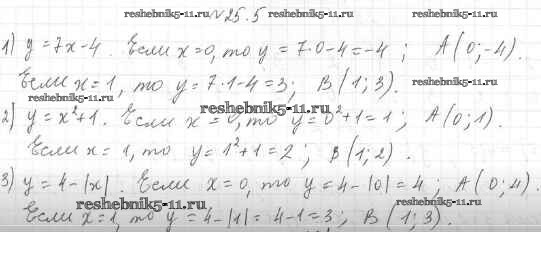 reshebnik5-11.ru №25.5 reshebnik5-11.ru reshebnik5-11.ru
1) y = 7x - 4. Если x = 0, то y = 7·0 - 4 = -4; A(0; -4).
Если x = 1, то y = 7·1 - 4 = 3; B(1; 3). reshebnik5-11.ru
reshebnik5-11.ru reshebnik5-11.ru
2) y = x² + 1. Если x = 0, то y = 0² + 1 = 1; A(0; 1).
Если x = 1, то y = 1² + 1 = 2; B(1; 2).
3) y = 4 - |x|. Если x = 0, то y = 4 - |0| = 4; A(0; 4).
reshebnik5-11.ru reshebnik5-11.ru
Если x = 1, то y = 4 - |1| = 4 - 1 = 3; B(1; 3).